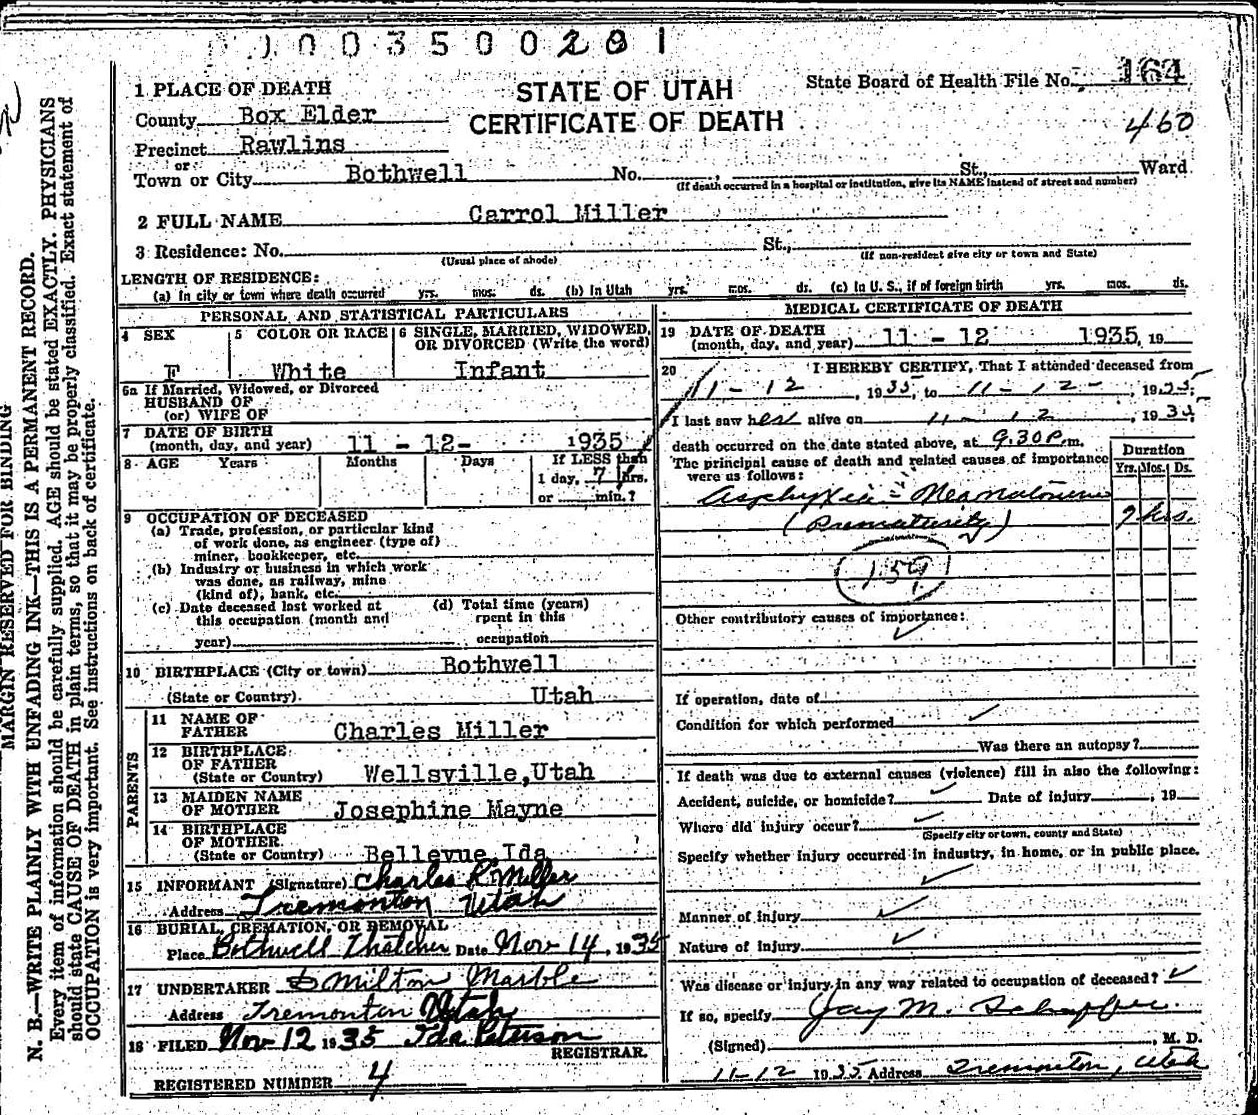 0 0 3 5 0 0 2 0 1
1 PLACE OF DEATH
STATE OF UTAH
CERTIFICATE OF DEATH
State Board of Health File No. 164
460
County Box Elder
Precinct Rawlins
or
Town or City Bothwell No. , St., Ward
(If death occurred in a hospital or institution, give its NAME instead of street and number)
2 FULL NAME Carrol Miller
3 Residence: No. St.,
(Usual place of abode) (If non-resident give city or town and State)
LENGTH OF RESIDENCE:
(a) In city or town where death occurred yrs. mos. ds. (b) In Utah yrs. mos. ds. (c) In U. S., if of foreign birth yrs. mos. ds.
PERSONAL AND STATISTICAL PARTICULARS
4 SEX 5 COLOR OR RACE 6 SINGLE, MARRIED, WIDOWED, OR DIVORCED (Write the word)
F White Infant
6a If Married, Widowed, or Divorced
HUSBAND OF
(or) WIFE OF
7 DATE OF BIRTH
(month, day, and year) 11 - 12- 1935
8 AGE Years Months Days If LESS than
1 day, 7 hrs.
or min.?
9 OCCUPATION OF DECEASED
(a) Trade, profession, or particular kind
of work done, as engineer (type of)
miner, bookkeeper, etc.
(b) Industry or business in which work
was done, as railway, mine
(kind of), bank, etc.
(c) Date deceased last worked at
this occupation (month and
year)
(d) Total time (years)
spent in this
occupation
10 BIRTHPLACE (City or town) Bothwell
(State or Country) Utah
PARENTS
11 NAME OF
FATHER Charles Miller
12 BIRTHPLACE
OF FATHER
(State or Country) Wellsville, Utah
13 MAIDEN NAME
OF MOTHER Josephine Mayne
14 BIRTHPLACE
OF MOTHER
(State or Country) Bellevue, Ida
15 INFORMANT (Signature) Charles R Miller
Address Tremonton Utah
16 BURIAL, CREMATION, OR REMOVAL
Place Bothwell Thatcher Date Nov 14, 1935
17 UNDERTAKER D Milton Marble
Address Tremonton Utah
18 FILED Nov 12 1935 Ida Peterson
REGISTRAR.
REGISTERED NUMBER 4
MEDICAL CERTIFICATE OF DEATH
19 DATE OF DEATH
(month, day, and year) 11 - 12 1935, 19
20 I HEREBY CERTIFY, That I attended deceased from
11-12, 1935, to 11-12-, 1935.
I last saw her alive on 11-12, 1935
death occurred on the date stated above, at 9.30 P.m.
The principal cause of death and related causes of importance
were as follows:
Duration
Yrs. Mos. Ds.
Asphyxia - Neonatorum
(Prematurity) 7 hrs.
159
Other contributory causes of importance:
If operation, date of
Condition for which performed
Was there an autopsy?
If death was due to external causes (violence) fill in also the following:
Accident, suicide, or homicide? Date of injury , 19
Where did injury occur?
(Specify city or town, county and State)
Specify whether injury occurred in industry, in home, or in public place.
Manner of injury
Nature of injury
Was disease or injury in any way related to occupation of deceased?
If so, specify
(Signed) Jay M. Schaffer , M. D.
11-12 1935. Address Tremonton, Utah
MARGIN RESERVED FOR BINDING
N. B.—WRITE PLAINLY WITH UNFADING INK—THIS IS A PERMANENT RECORD.
Every item of information should be carefully supplied. AGE should be stated EXACTLY. PHYSICIANS
should state CAUSE OF DEATH in plain terms, so that it may be properly classified. Exact statement of
OCCUPATION is very important. See instructions on back of certificate.